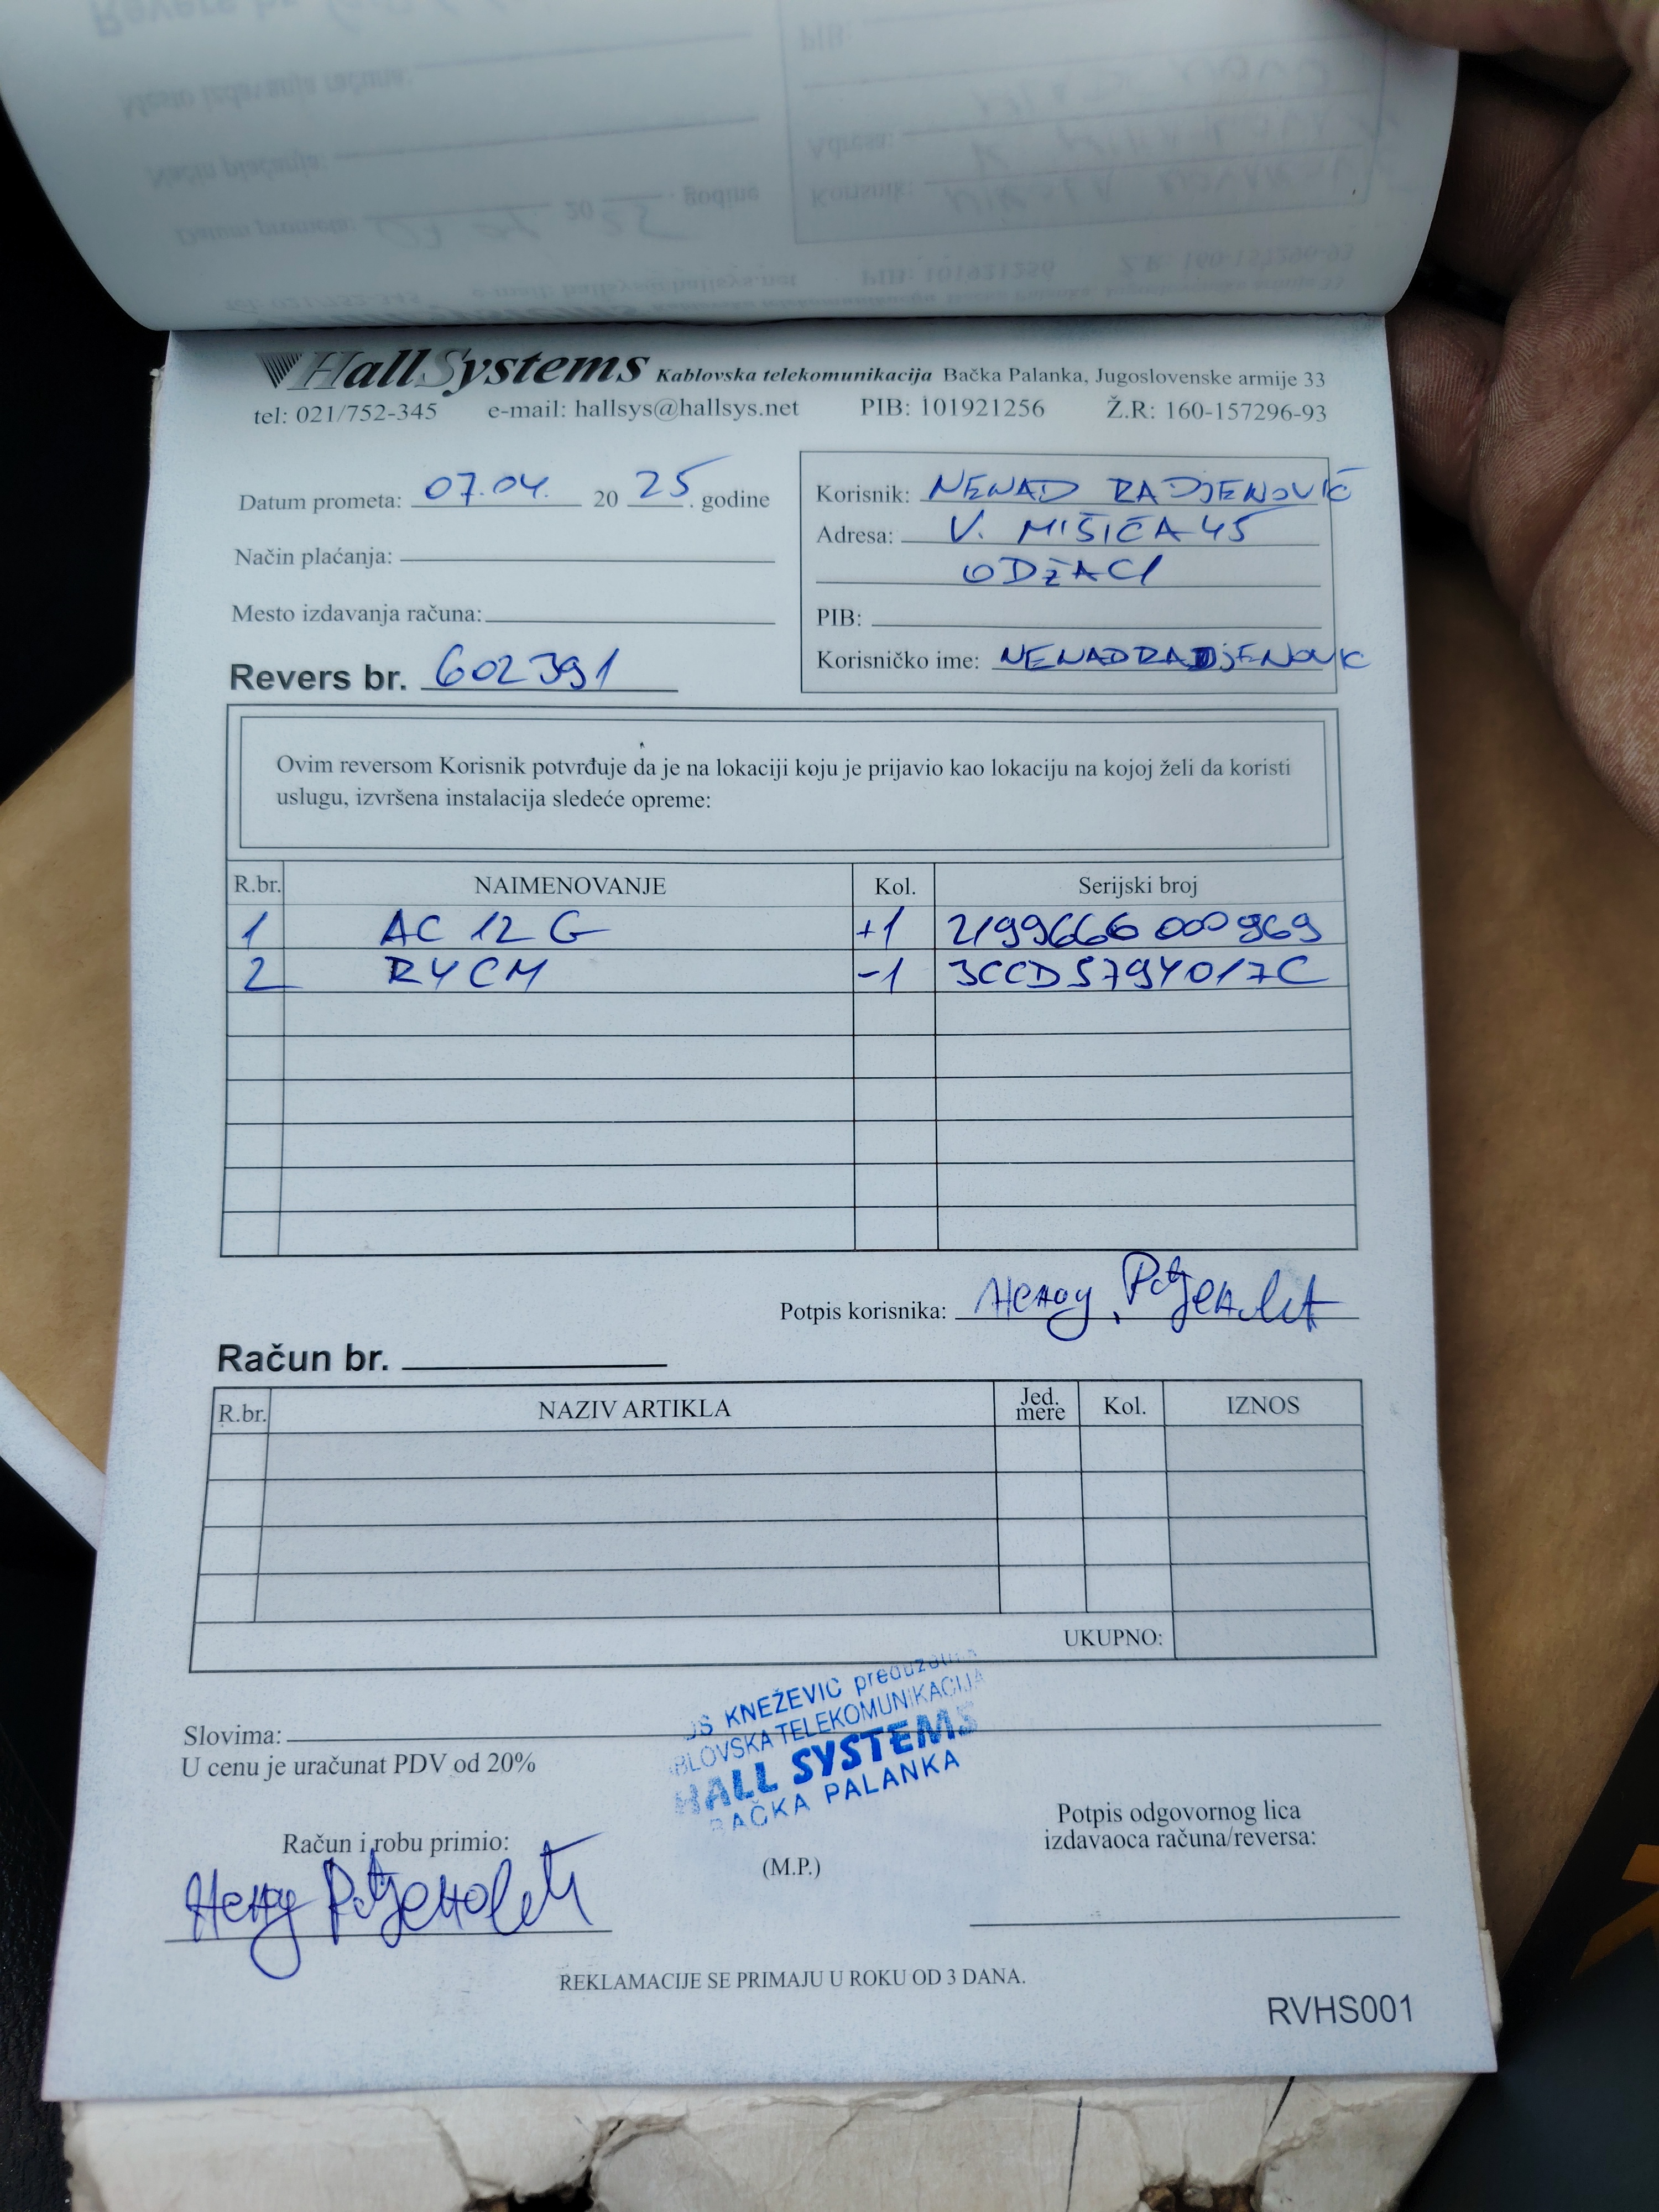 HallSystems Kablovska telekomunikacija Bačka Palanka, Jugoslovenske armije 33
tel: 021/752-345 e-mail: hallsys@hallsys.net PIB: 101921256 Ž.R: 160-157296-93
Datum prometa: 07.04. 20 25. godine
Način plaćanja:
Mesto izdavanja računa:
Revers br. 602391
Korisnik: NENAD RADJENOVIĆ
Adresa: V. MIŠIĆA 45
ODŽACI
PIB:
Korisničko ime: NENADRADJENOVIC
Ovim reversom Korisnik potvrđuje da je na lokaciji koju je prijavio kao lokaciju na kojoj želi da koristi
uslugu, izvršena instalacija sledeće opreme:
R.br. NAIMENOVANJE Kol. Serijski broj
1 AC 12 G +1 2199666000969
2 R4CM -1 3CCD5794017C
Potpis korisnika:
Račun br.
R.br. NAZIV ARTIKLA Jed. mere Kol. IZNOS
UKUPNO:
KNEŽEVIĆ
TELEKOMUNIKACIJA
HALL SYSTEMS
BAČKA PALANKA
Slovima:
U cenu je uračunat PDV od 20%
Račun i robu primio:
(M.P.)
Potpis odgovornog lica
izdavaoca računa/reversa:
REKLAMACIJE SE PRIMAJU U ROKU OD 3 DANA.
RVHS001